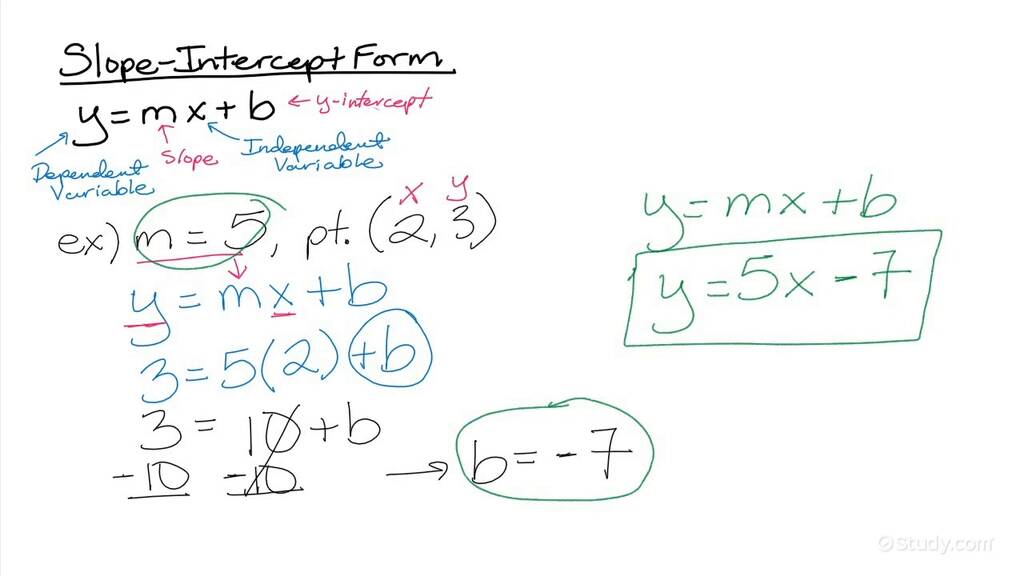 Slope-Intercept Form
y = mx + b ← y-intercept
Dependent Variable
Slope
Independent Variable
x y
ex) m = 5, pt. (2, 3)
y = mx + b
3 = 5(2) + b
3 = 10 + b
-10 -10 → b = -7
y = mx + b
y = 5x - 7
Study.com